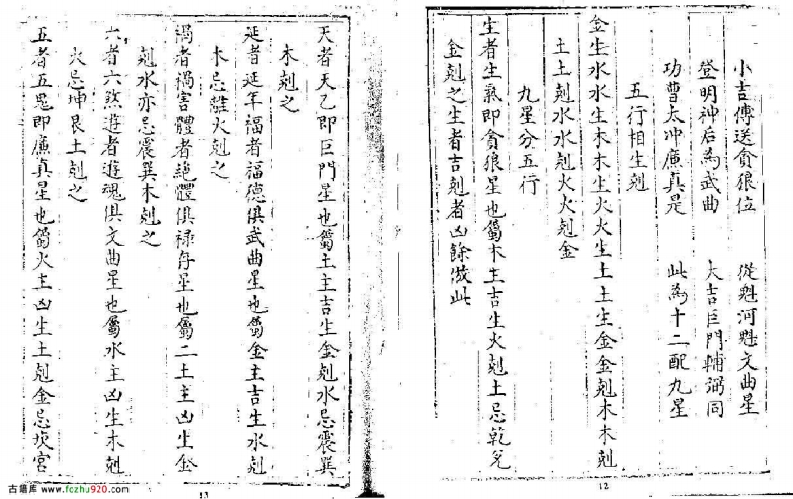 小吉傳送貪狼位　從魁河魁文曲星
登明神后為武曲　大吉巨門輔弼同
功曹太冲廉真是　此為十二配九星
五行相生剋
金生水水生木木生火火生土土生金金剋木木剋
土土剋水水剋火火剋金
九星分五行
生者生炁即貪狼星也屬木主吉生火剋土忌乾兌
金剋之生者吉剋者凶餘倣此
12
天者天乙即巨門星也屬土主吉生金剋水忌震巽
木剋之
延者延年福者福德俱武曲星也屬金主吉生水剋
木忌離火剋之
禍者禍害體者絕體俱禄存星也屬二土主凶生金
剋水亦忌震巽木剋之
六者六煞遊者遊魂俱文曲星也屬水主凶生木剋
火忌坤艮土剋之
五者五鬼即廉真星也屬火主凶生土剋金忌坎宮
13
古籍库 www.fczhu920.com